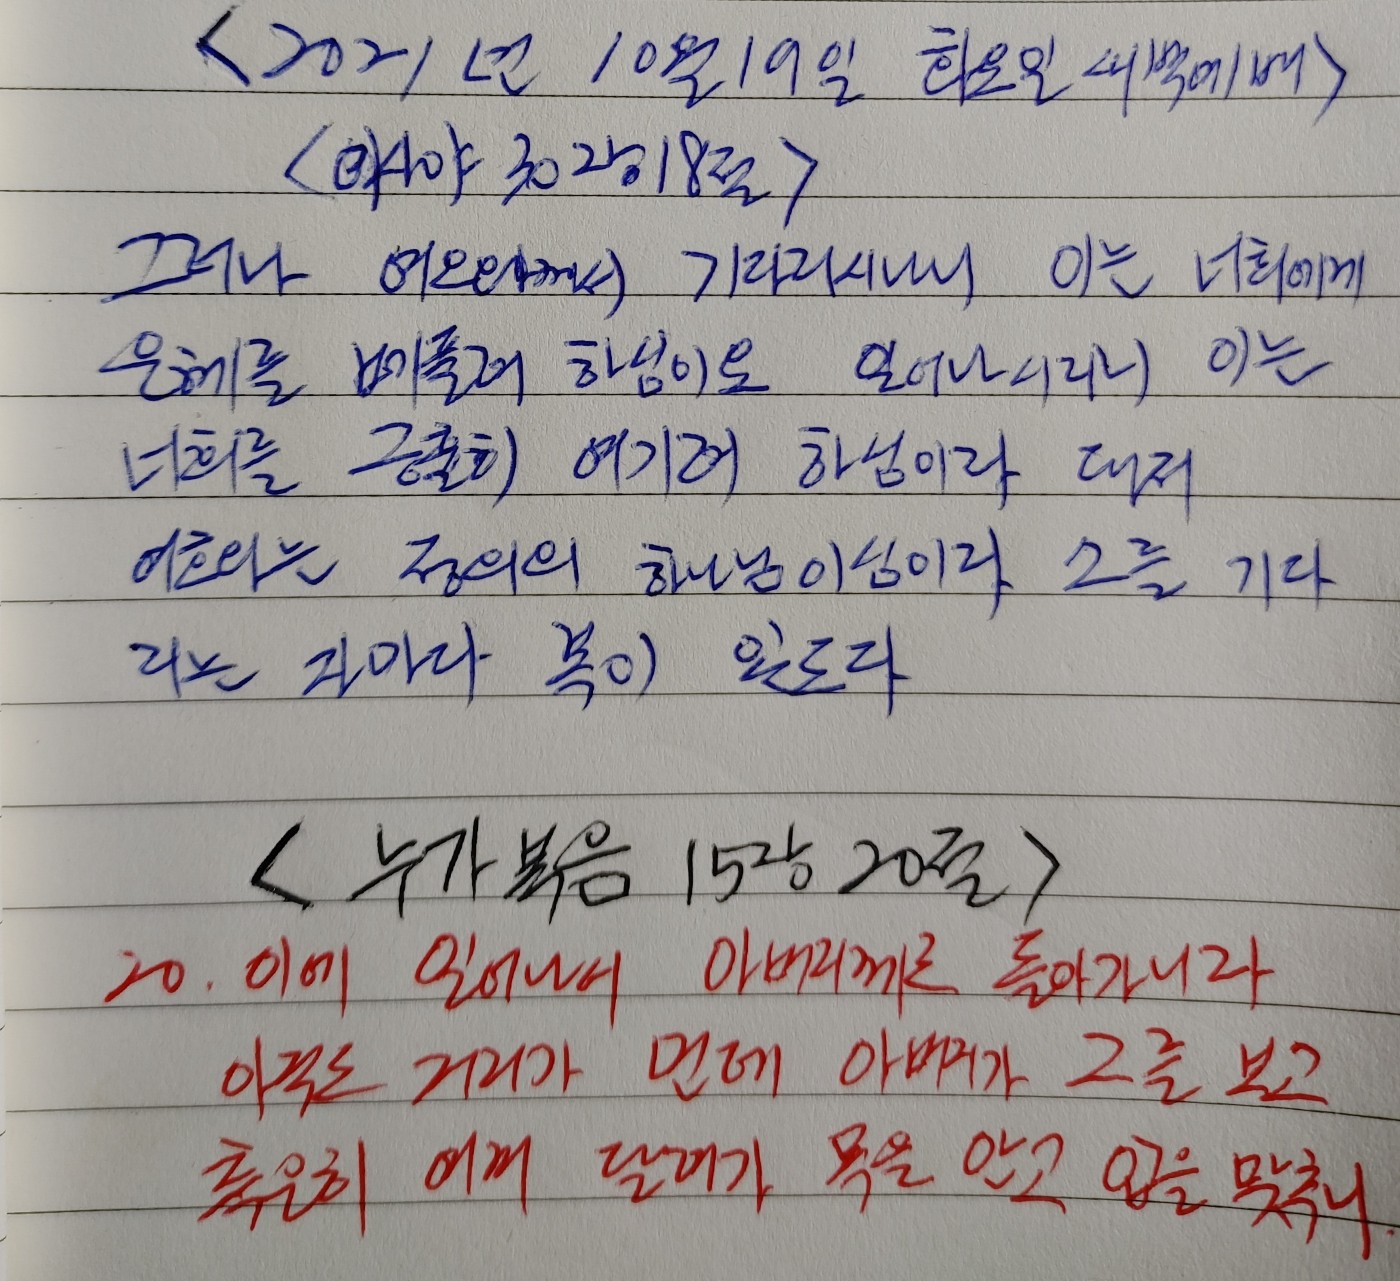 <2021년 10월 19일 화요일 새벽예배>
<이사야 30장 18절>
그러나 여호와께서 기다리시나니 이는 너희에게
은혜를 베풀려 하심이요 일어나시리니 이는
너희를 긍휼히 여기려 하심이라 대저
여호와는 정의의 하나님이심이라 그를 기다
리는 자마다 복이 있도다
<누가복음 15장 20절>
20. 이에 일어나서 아버지께로 돌아가니라
아직도 거리가 먼데 아버지가 그를 보고
측은히 여겨 달려가 목을 안고 입을 맞추니.